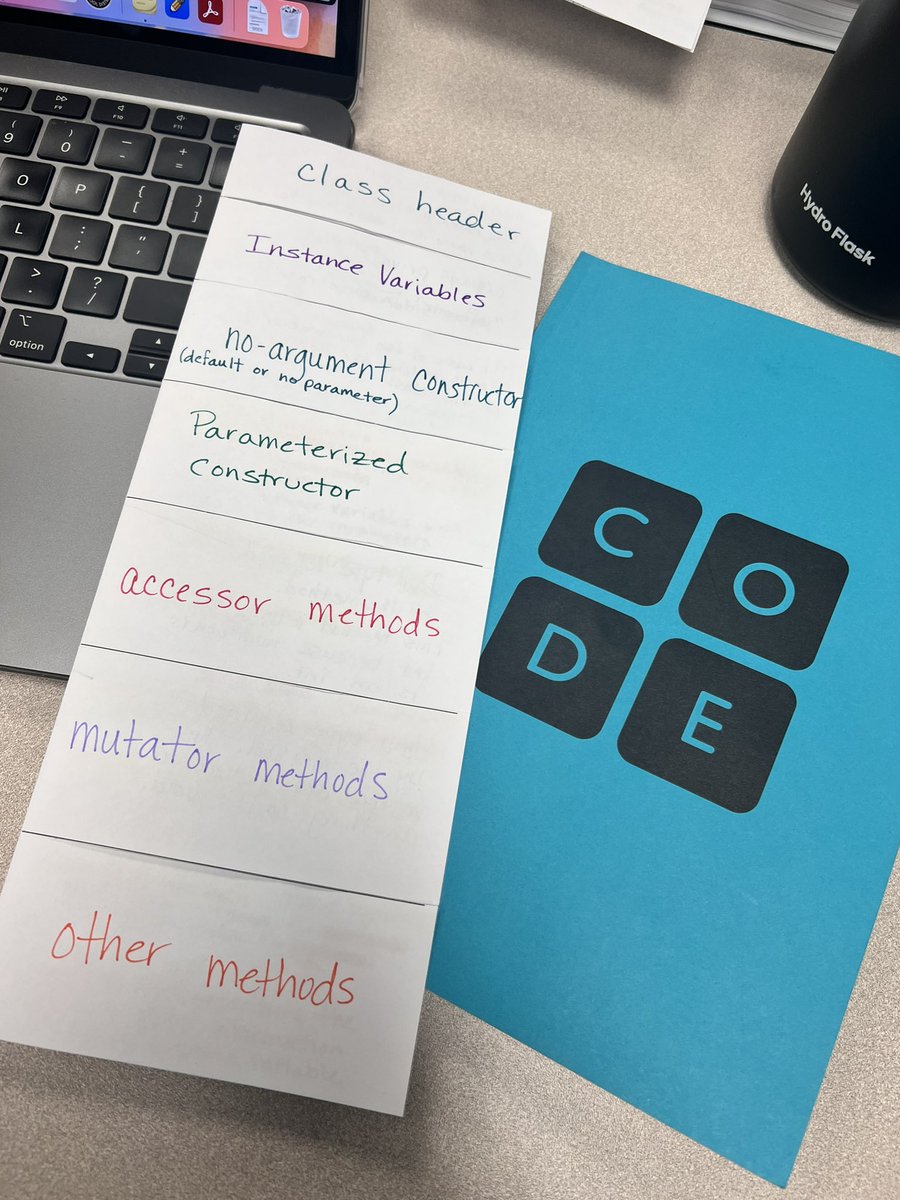 class header
Instance Variables
no-argument constructor
(default or no parameter)
Parameterized
constructor
accessor methods
mutator methods
other methods
C O
D E
Hydro Flask
F9
F10
F11
(
9
)
0
-
+
=
O
P
{
[
}
]
L
:
;
"
'
>
.
?
/
option